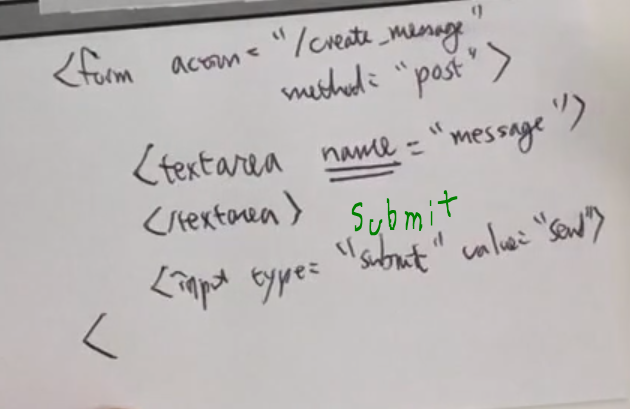 <form action="/create_message"
method="post">
<textarea name="message">
</textarea>
Submit
<input type="submit" value="send">
<